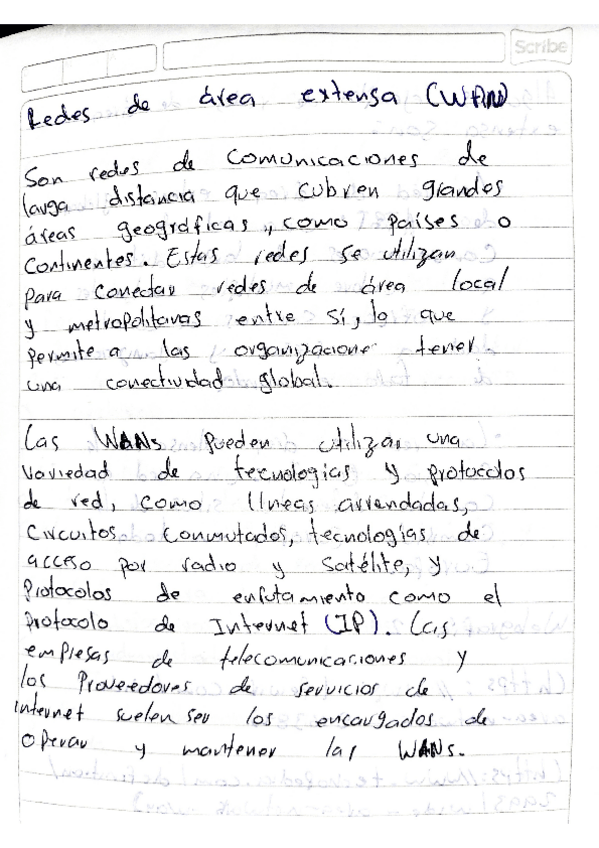 Scribe
Redes de área extensa (WAN)
Son redes de comunicaciones de
larga distancia que cubren grandes
áreas geográficas, como países o
continentes. Estas redes se utilizan
para conectar redes de área local
y metropolitanas entre sí, lo que
permite a las organizacione tener
una conectividad global.
Las WANs pueden utilizar una
variedad de tecnologías y protocolos
de red, como líneas arrendadas,
circuitos conmutados, tecnologías de
acceso por radio y satélite, y
protocolos de enrutamiento como el
protocolo de Internet (IP). Las
empresas de telecomunicaciones y
los proveedores de servicios de
internet suelen ser los encargados de
operar y mantener las WANs.